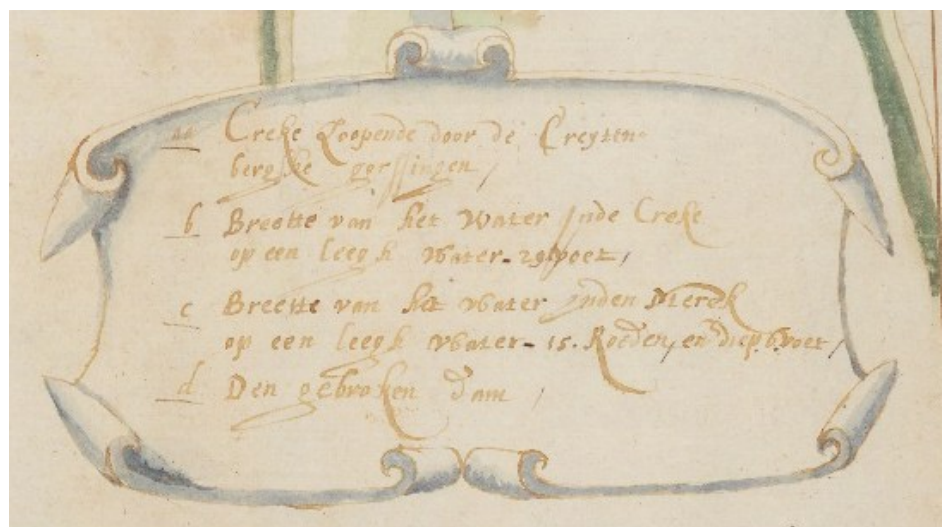 aa Creke Loopende door de Creyten-
bergsche gorssingen /
b Breette van het Water inde Creke
op een leegh Water - 29 voet /
c Breette van het Water inden Merck
op een leegh Water - 15. Roeden, en diep 6 voet /
d Den gebroken dam /